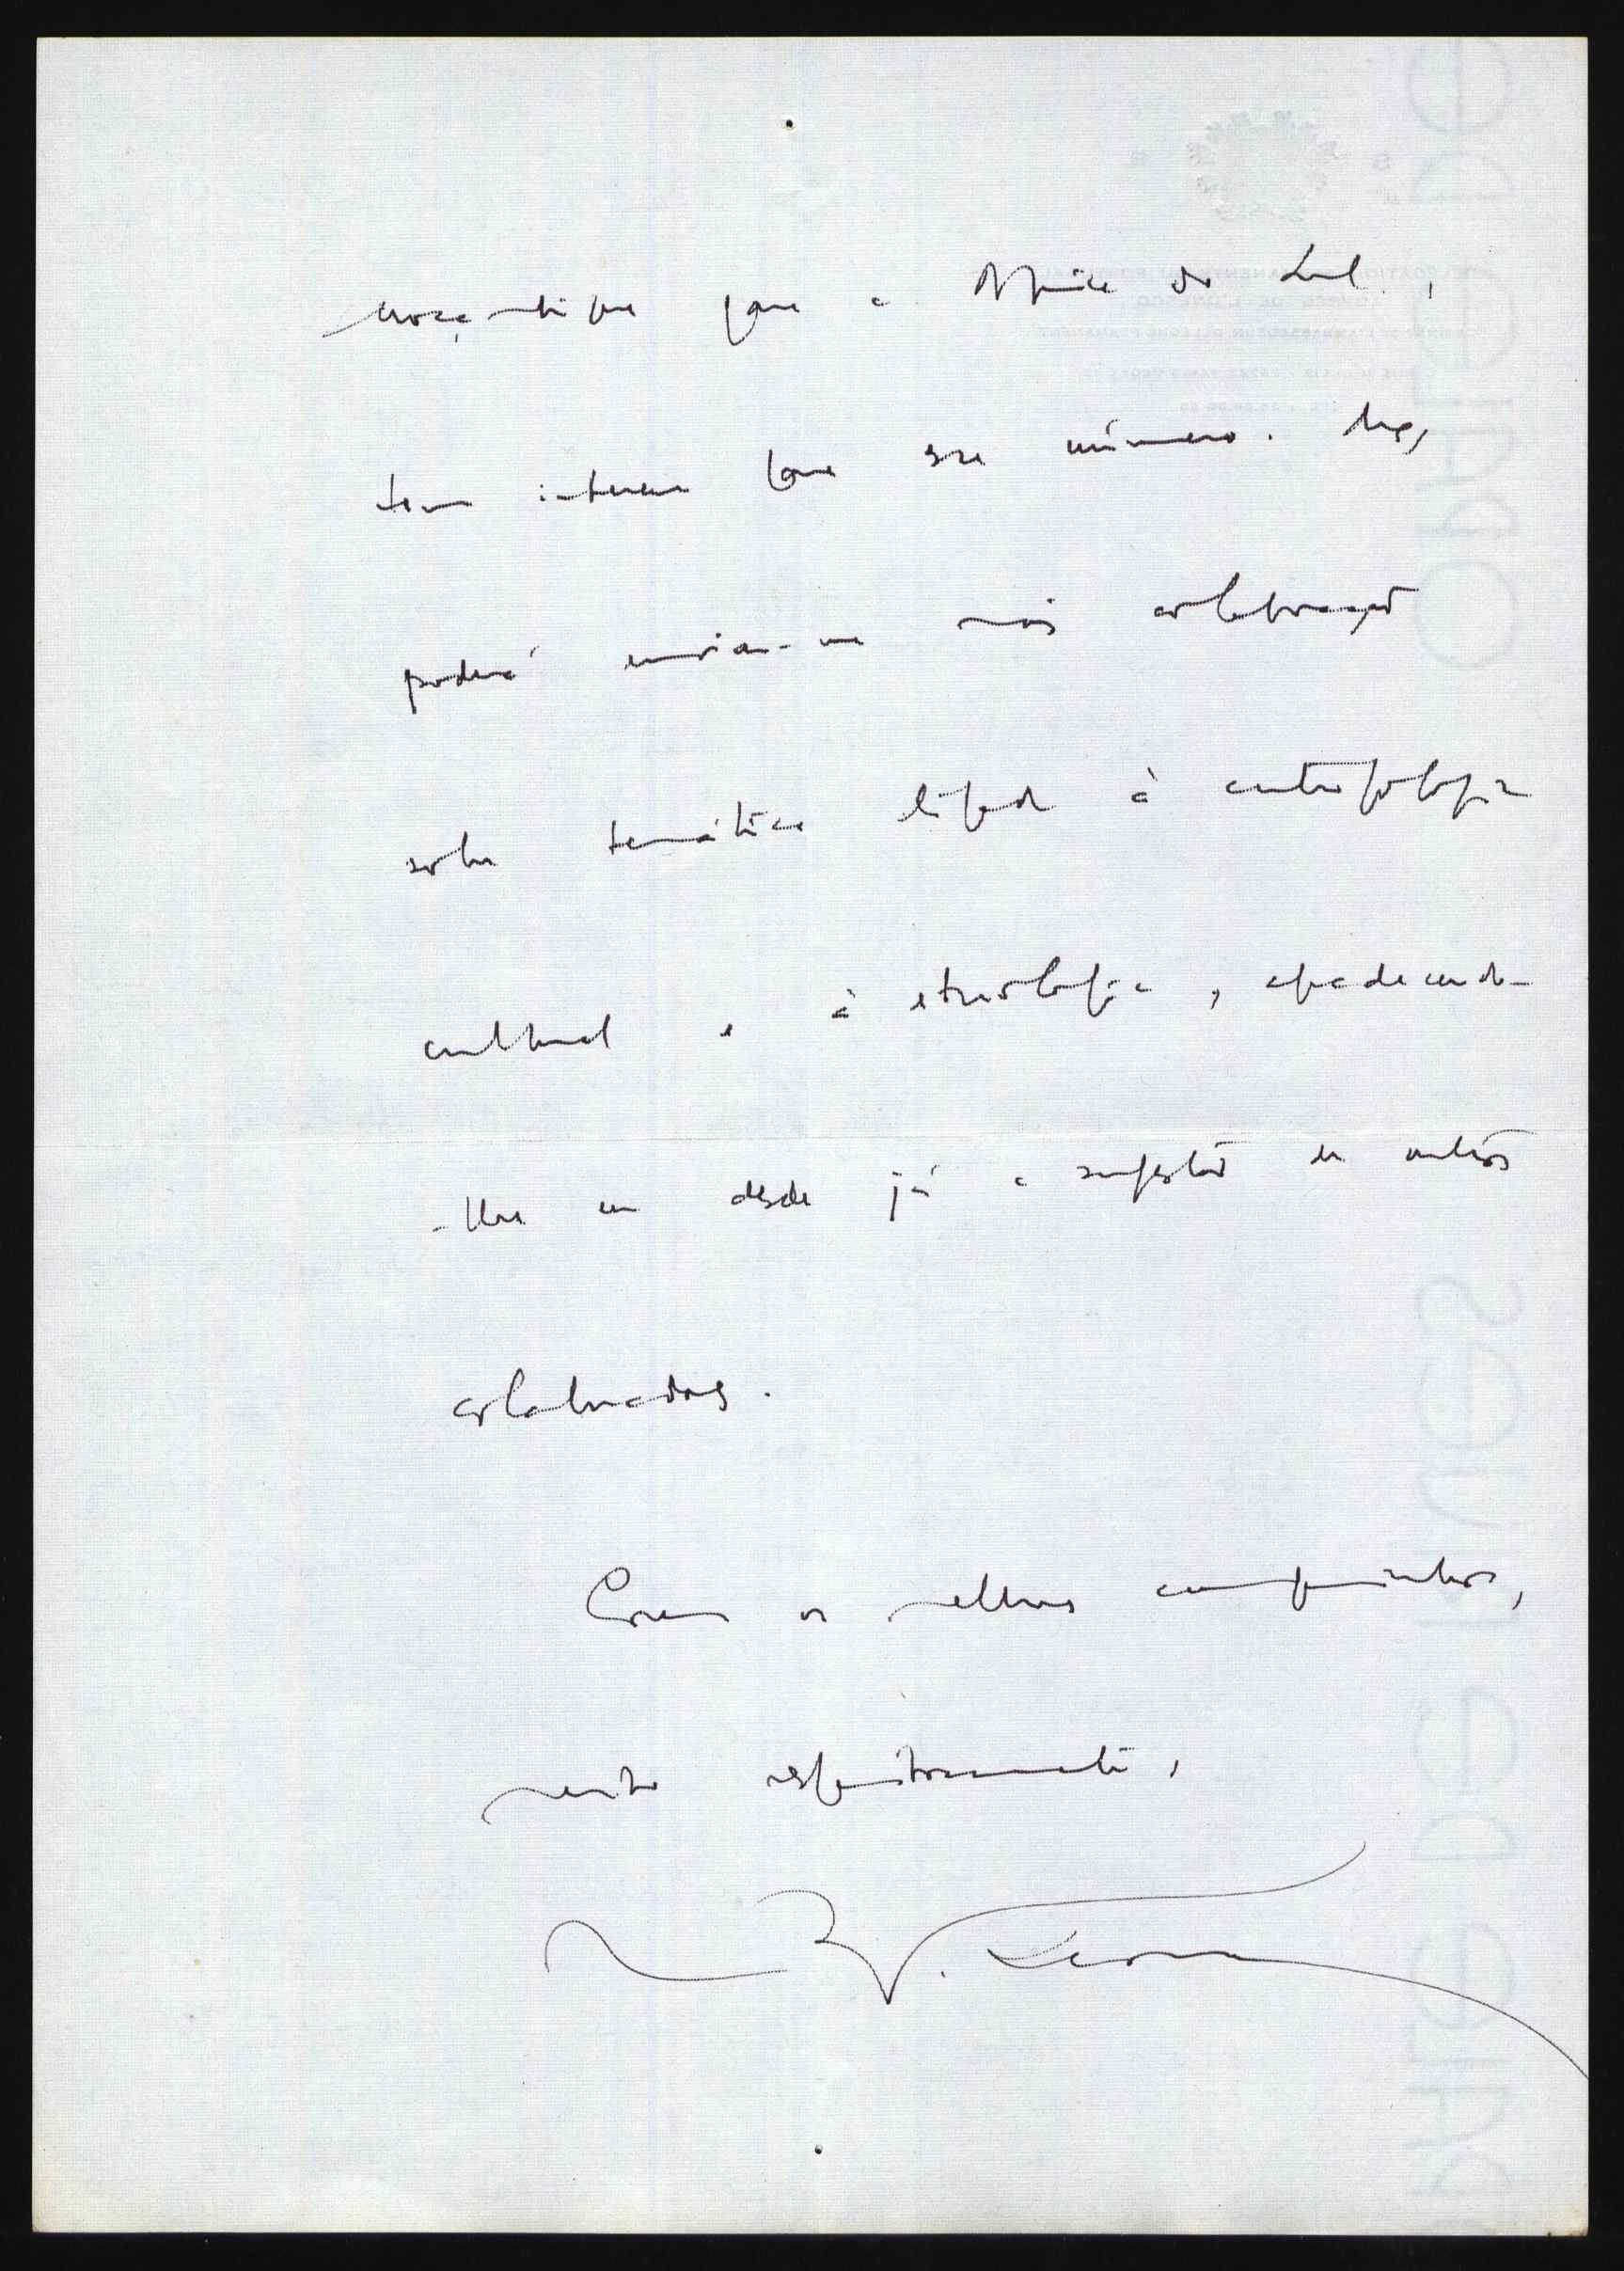 Moçambique para a África do Sul,
tem interesse para esse número. Mas,
poderá enviar-me mais colaboração
sobre temática ligada à antropologia
cultural e à etnologia, agradecendo-
-lhe eu desde já a sugestão de outros
colaboradores.
Com os melhores cumprimentos,
muito respeitosamente,